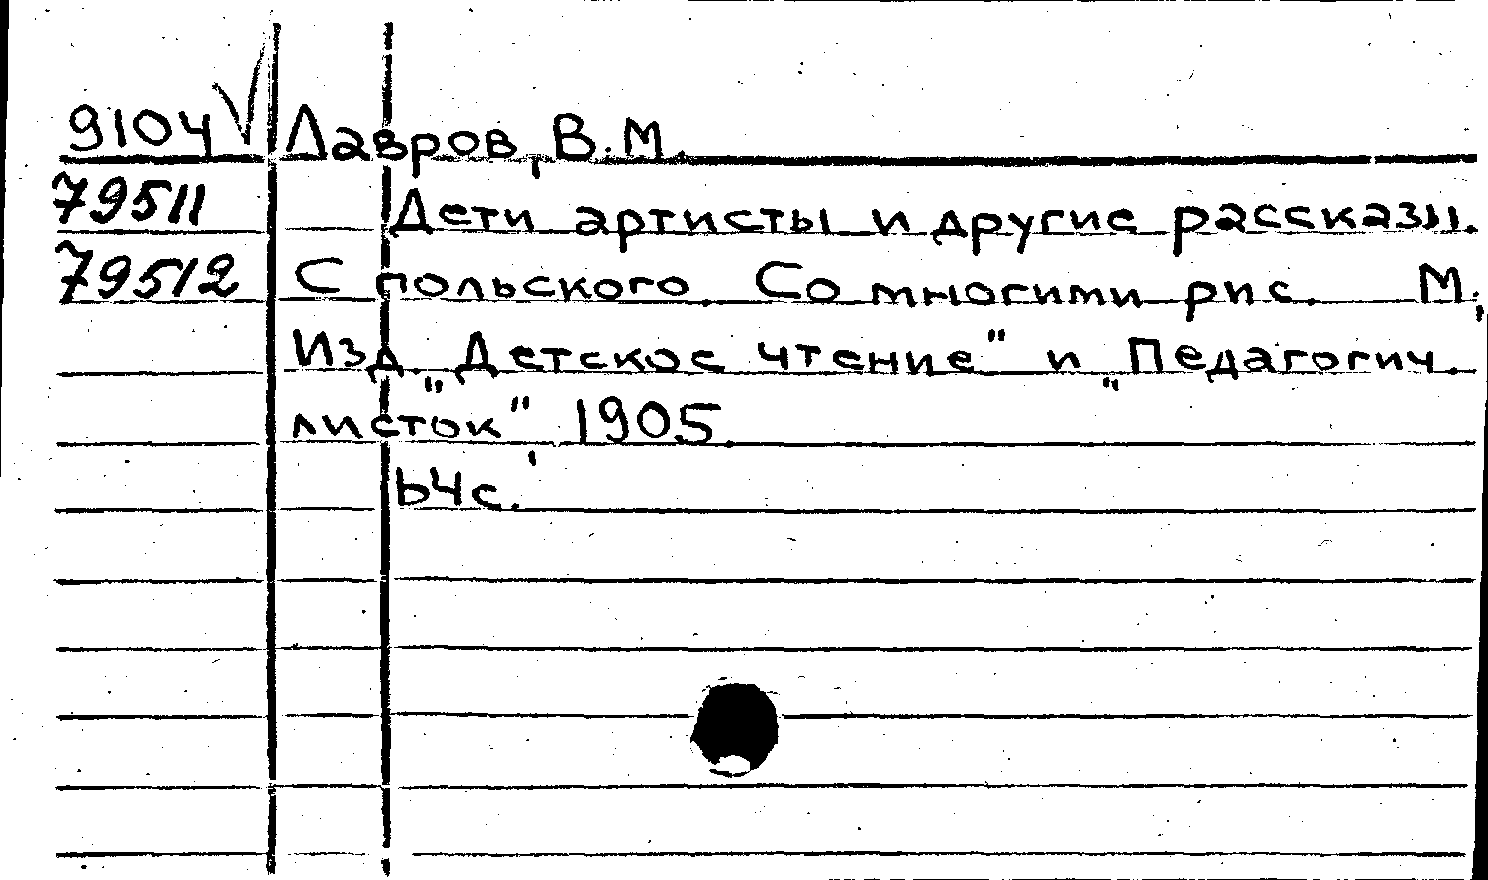 9104 Лавров, В.М.
79511 Дети артисты и другие рассказы.
79512 С польского. Со многими рис. М.,
Изд. „Детское чтение" и „Педагогич.
листок", 1905
64с.